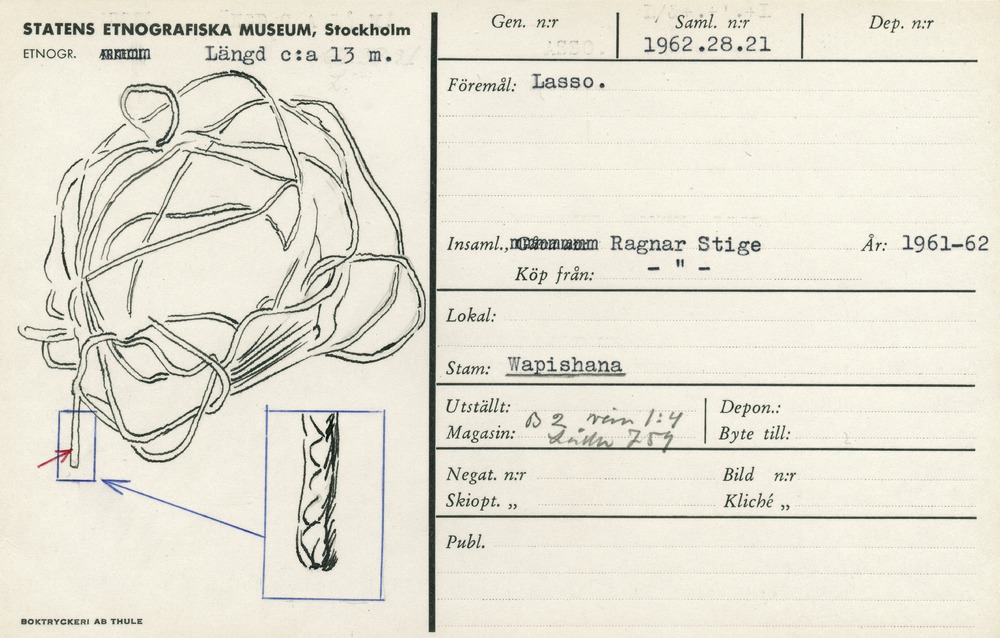 STATENS ETNOGRAFISKA MUSEUM, Stockholm
ETNOGR. Längd c:a 13 m.
BOKTRYCKERI AB THULE
Gen. n:r Saml. n:r Dep. n:r
1962.28.21
Föremål: Lasso.
Insaml., Ragnar Stige År: 1961-62
Köp från: - " -
Lokal:
Stam: Wapishana
Utställt: Depon.:
B 2 1:4
Magasin: Byte till:
Negat. n:r Bild n:r
Skiopt. „ Kliché „
Publ.